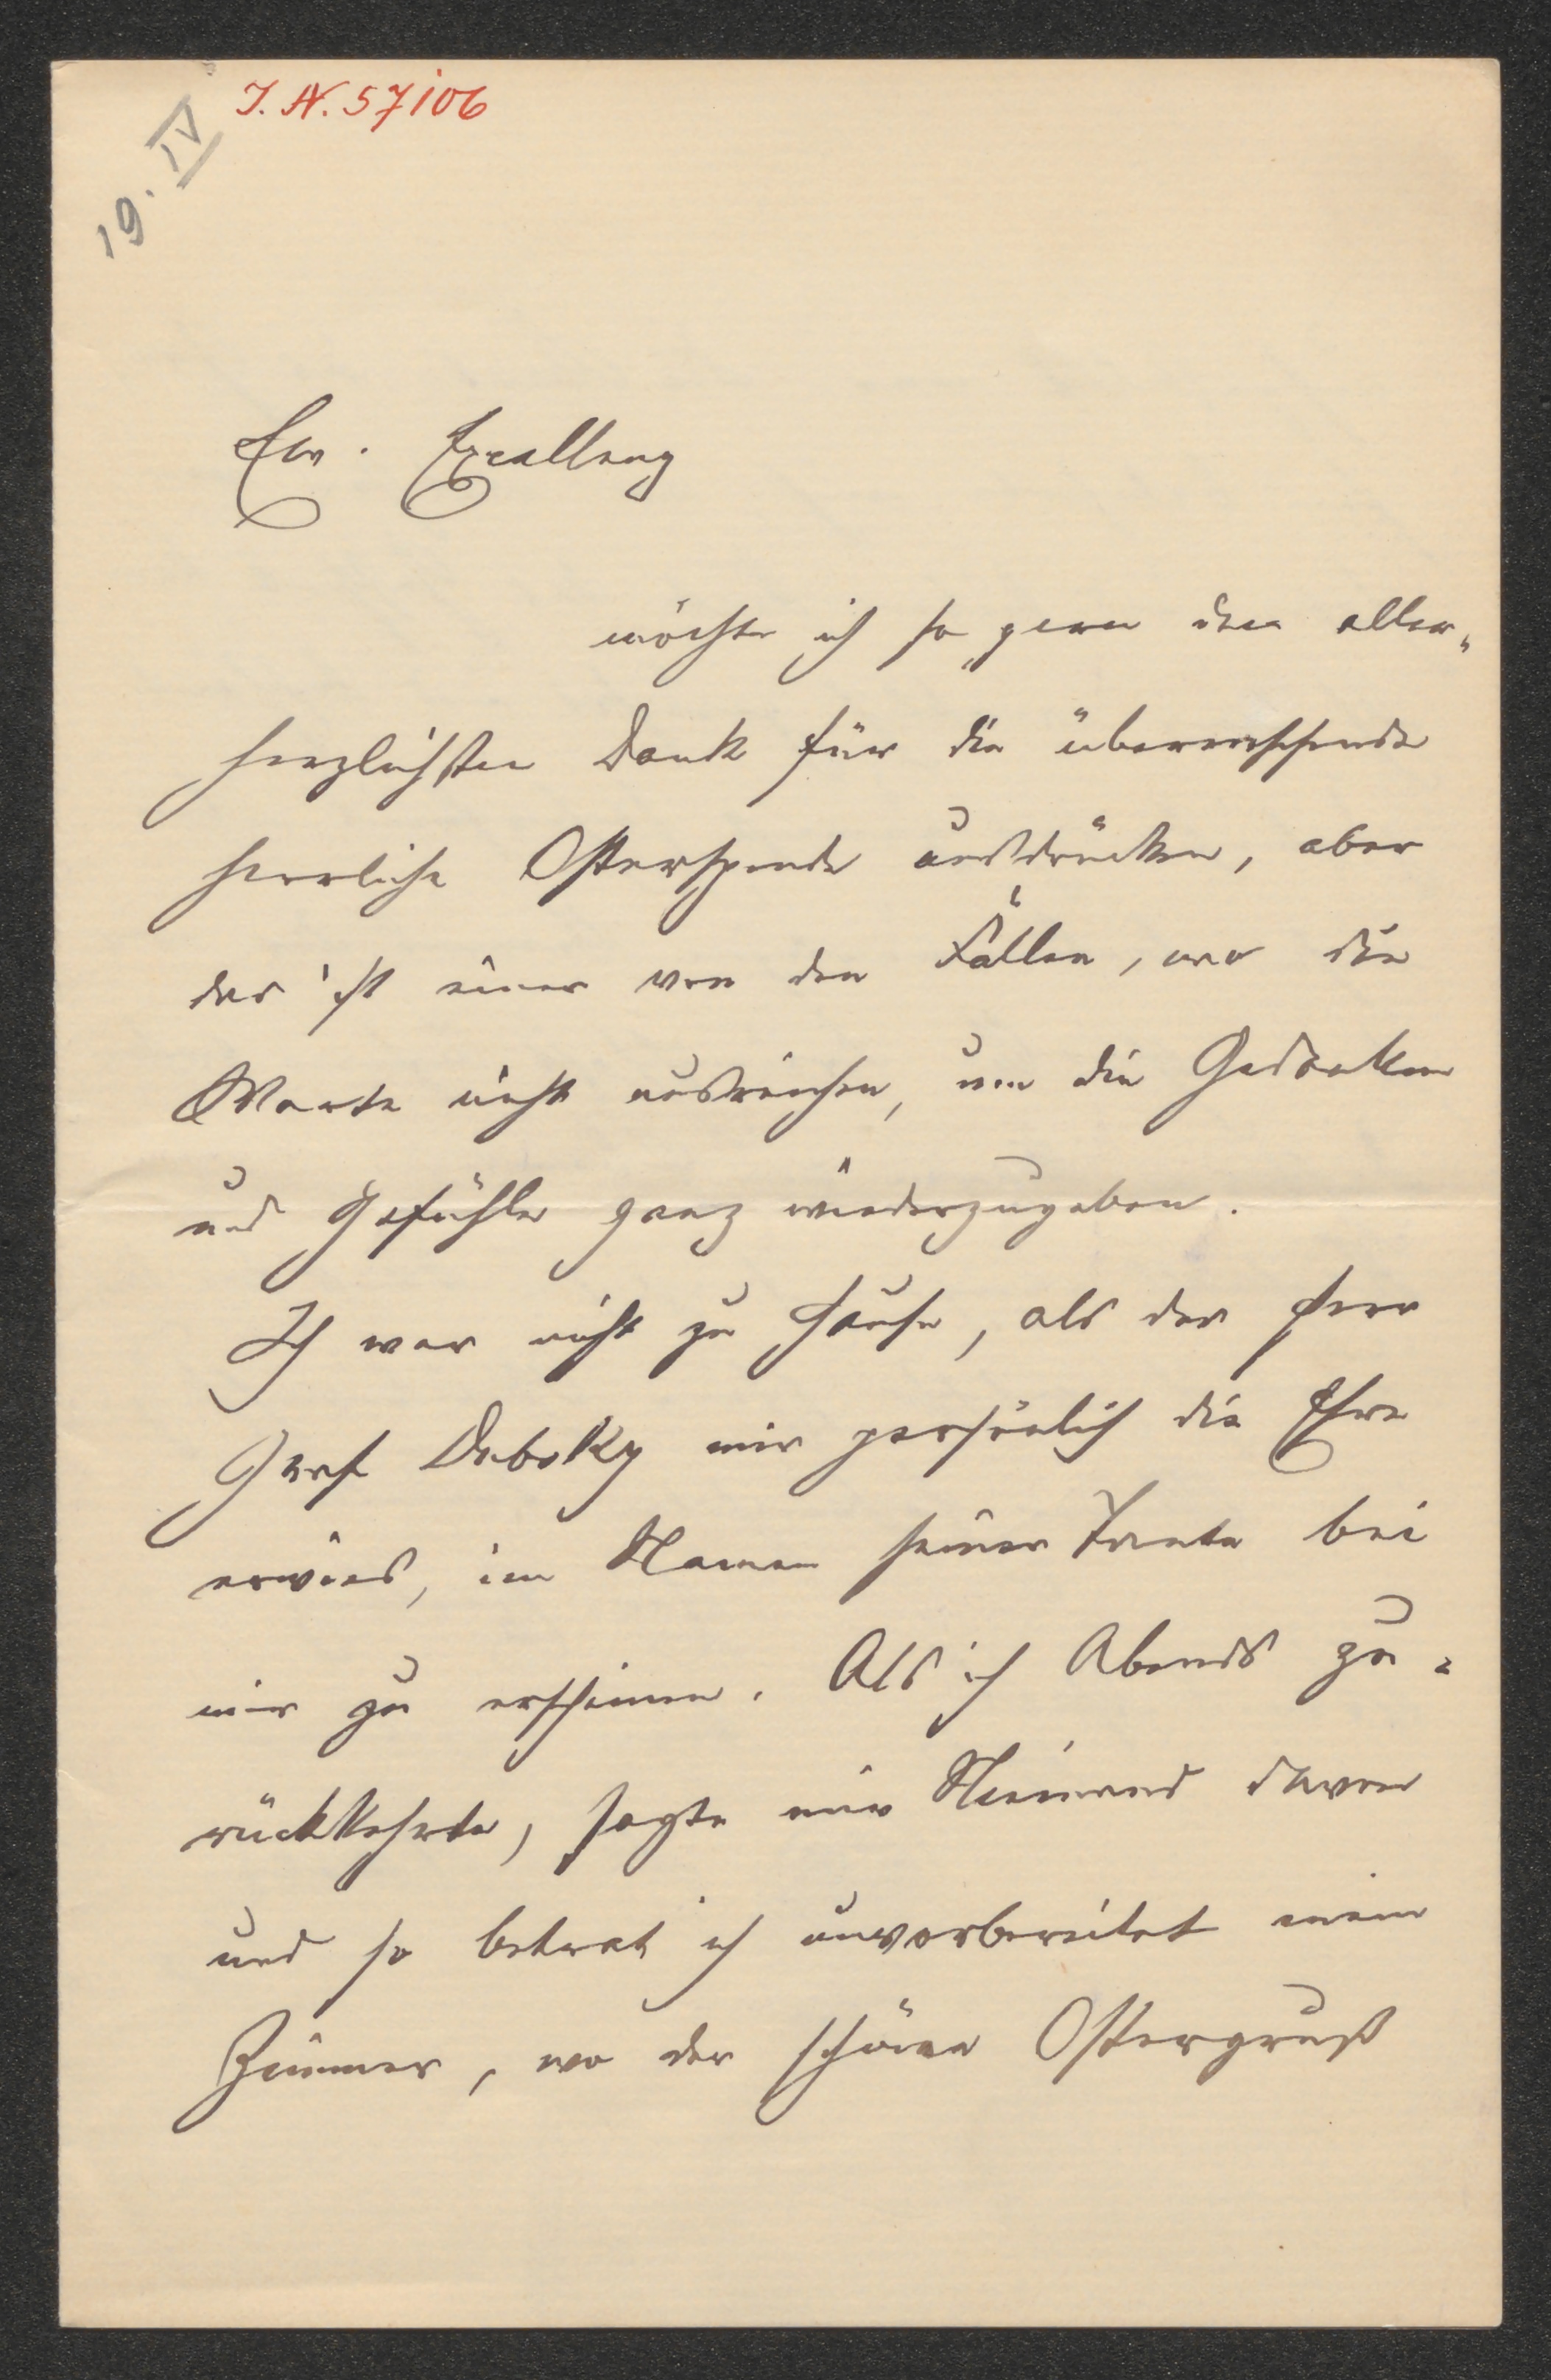 J. N. 57106
19. IV
Ew. Excellenz
möchte ich so gern den aller-
herzlichsten Dank für die überraschende
herrliche Osterspende ausdrücken, aber
das ist einer von den Fällen, wo die
Worte nicht ausreichen, um die Gedanken
und Gefühle ganz wiederzugeben.
Ich war nicht zu Hause, als der Herr
Graf Dubsky mir persönlich die Ehre
erwies, im Namen seiner Tante bei
mir zu erscheinen. Als ich Abends zu-
rückkehrte, sagte mir Niemand davon
und so betrat ich unvorbereitet mein
Zimmer, wo der schöne Ostergruß